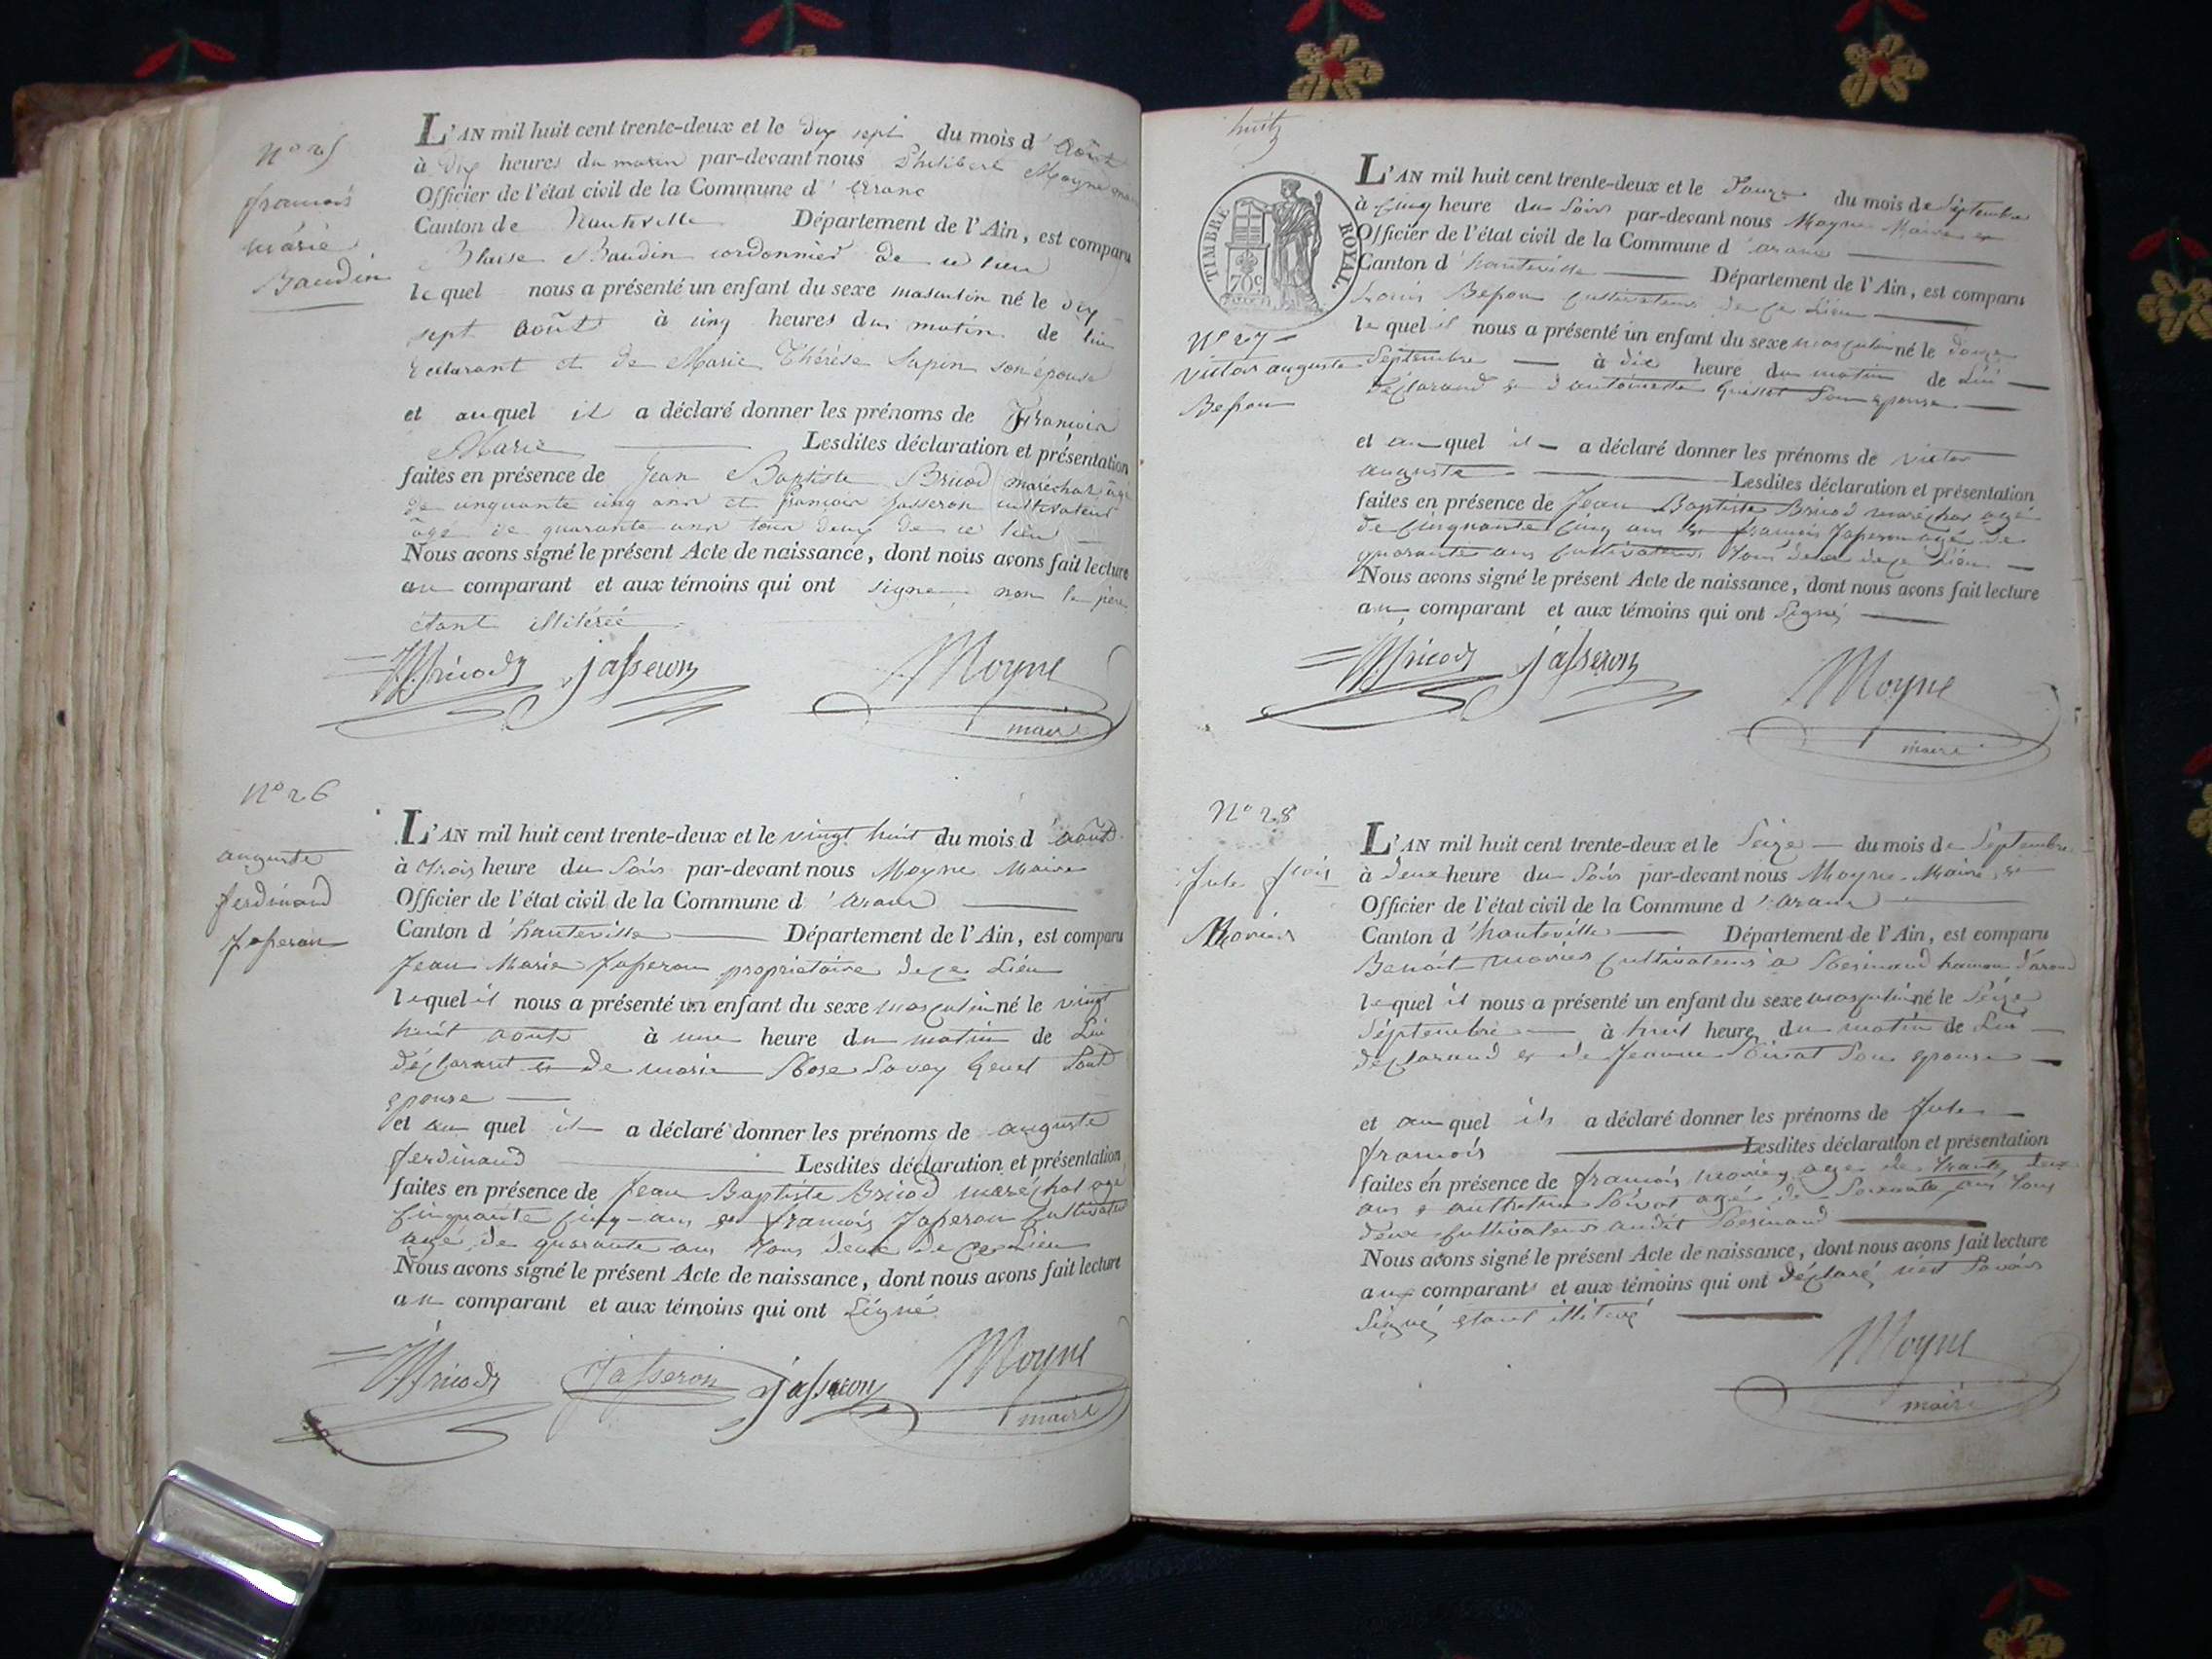 N° 25
françois
marie
Baudin
L'AN mil huit cent trente-deux et le dix sept du mois d'Août
à dix heures du matin par-devant nous Philibert Moyne
Officier de l'état civil de la Commune d'Aranc
Canton de hauteville Département de l'Ain, est comparu
Blaise Baudin cordonnier de ce lieu
lequel nous a présenté un enfant du sexe masculin né le dix
sept août à cinq heures du matin de lui
déclarant et de Marie Thérèse Supin son épouse
et auquel il a déclaré donner les prénoms de François
Marie Lesdites déclaration et présentation
faites en présence de Jean Baptiste Bricod maréchal âgé
de cinquante cinq ans et françois Jasseron cultivateur
âgé de quarante ans tous deux de ce lieu
Nous avons signé le présent Acte de naissance, dont nous avons fait lecture
au comparant et aux témoins qui ont signé non le père
étant illitérée
Bricod jasseron Moyne
maire
N° 26
auguste
ferdinand
Jasseron
L'AN mil huit cent trente-deux et le vingt huit du mois d'août
à trois heure du soir par-devant nous Moyne Maire
Officier de l'état civil de la Commune d'aranc
Canton d'hauteville Département de l'Ain, est comparu
Jean Marie Jasseron propriétaire de ce Lieu
lequel il nous a présenté un enfant du sexe masculin né le vingt
huit août à une heure du matin de Lui
déclarant et de marie Rose Savey Genet Sont
epouse
et au quel il a déclaré donner les prénoms de auguste
ferdinand Lesdites déclaration et présentation
faites en présence de Jean Baptiste Bricod maréchal agé
Cinquante Cinq ans et françois Jasseron Cultivateur
agé de quarante ans tous deux de ce Lieu
Nous avons signé le présent Acte de naissance, dont nous avons fait lecture
au comparant et aux témoins qui ont Signé
Bricod Jasseron jasseron Moyne
maire
huit
TIMBRE ROYAL.
70c
N° 27
victor auguste
Besson
L'AN mil huit cent trente-deux et le Douze du mois de Septembre
à Cinq heure du Soir par-devant nous Moyne Maire et
Officier de l'état civil de la Commune d'aranc
Canton d'hauteville Département de l'Ain, est comparu
Louis Besson Cultivateur de ce Lieu
lequel il nous a présenté un enfant du sexe masculin né le douze
Septembre à dix heure du matin de Lui
déclarand et d'antoinette Guillot Son epouse
et au quel il a déclaré donner les prénoms de victor
auguste Lesdites déclaration et présentation
faites en présence de Jean Baptiste Bricod maréchal agé
de Cinquante Cinq ans et françois Jasseron agé de
quarante ans Cultivateur tous deux de ce Lieu
Nous avons signé le présent Acte de naissance, dont nous avons fait lecture
au comparant et aux témoins qui ont Signé
Bricod jasseron Moyne
maire
N° 28
Jule fçois
Moriès
L'AN mil huit cent trente-deux et le Seize du mois de Septembre
à Deux heure du Soir par-devant nous Moyne Maire et
Officier de l'état civil de la Commune d'aranc
Canton d'hauteville Département de l'Ain, est comparu
Benoit Cultivateur a Résinand hameau d'aranc
lequel il nous a présenté un enfant du sexe masculin né le Seize
Septembre à huit heure du matin de Lui
déclarand et de Jeanne Son epouse
et au quel ils a déclaré donner les prénoms de Jule
françois Lesdites déclaration et présentation
faites en présence de françois agé de trante deux
ans et agé de Soixante ans tous
deux Cultivateurs audit Résinand
Nous avons signé le présent Acte de naissance, dont nous avons fait lecture
aux comparants et aux témoins qui ont déclaré Savoir
Signé étant illitéré
Moyne
maire